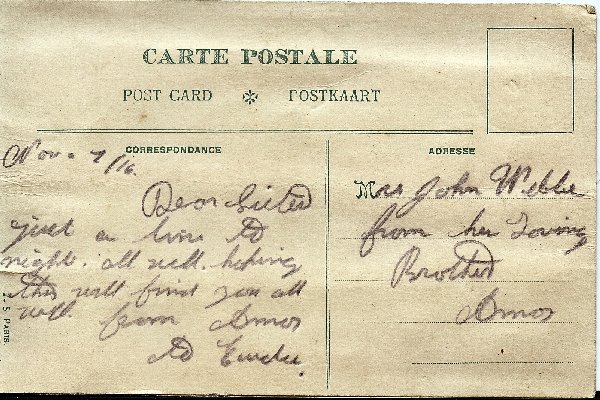 CARTE POSTALE
POST CARD ✻ POSTKAART
CORRESPONDANCE
ADRESSE
Nov. 7/16.
Dear Sister
just a line to
night. all well. hoping
this will find you all
well from Amos
to
Mrs John Webbe
from her Loving
Brother
Amos
PARIS